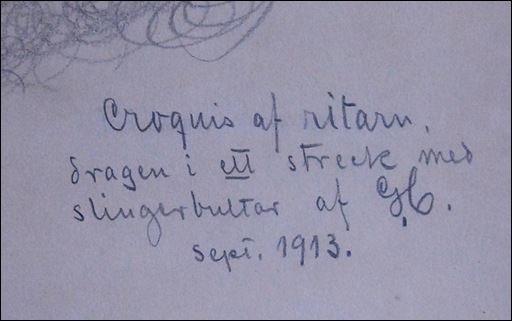 Croquis af ritarn,
dragen i ett streck med
slingerbultar af G.C.
sept. 1913.